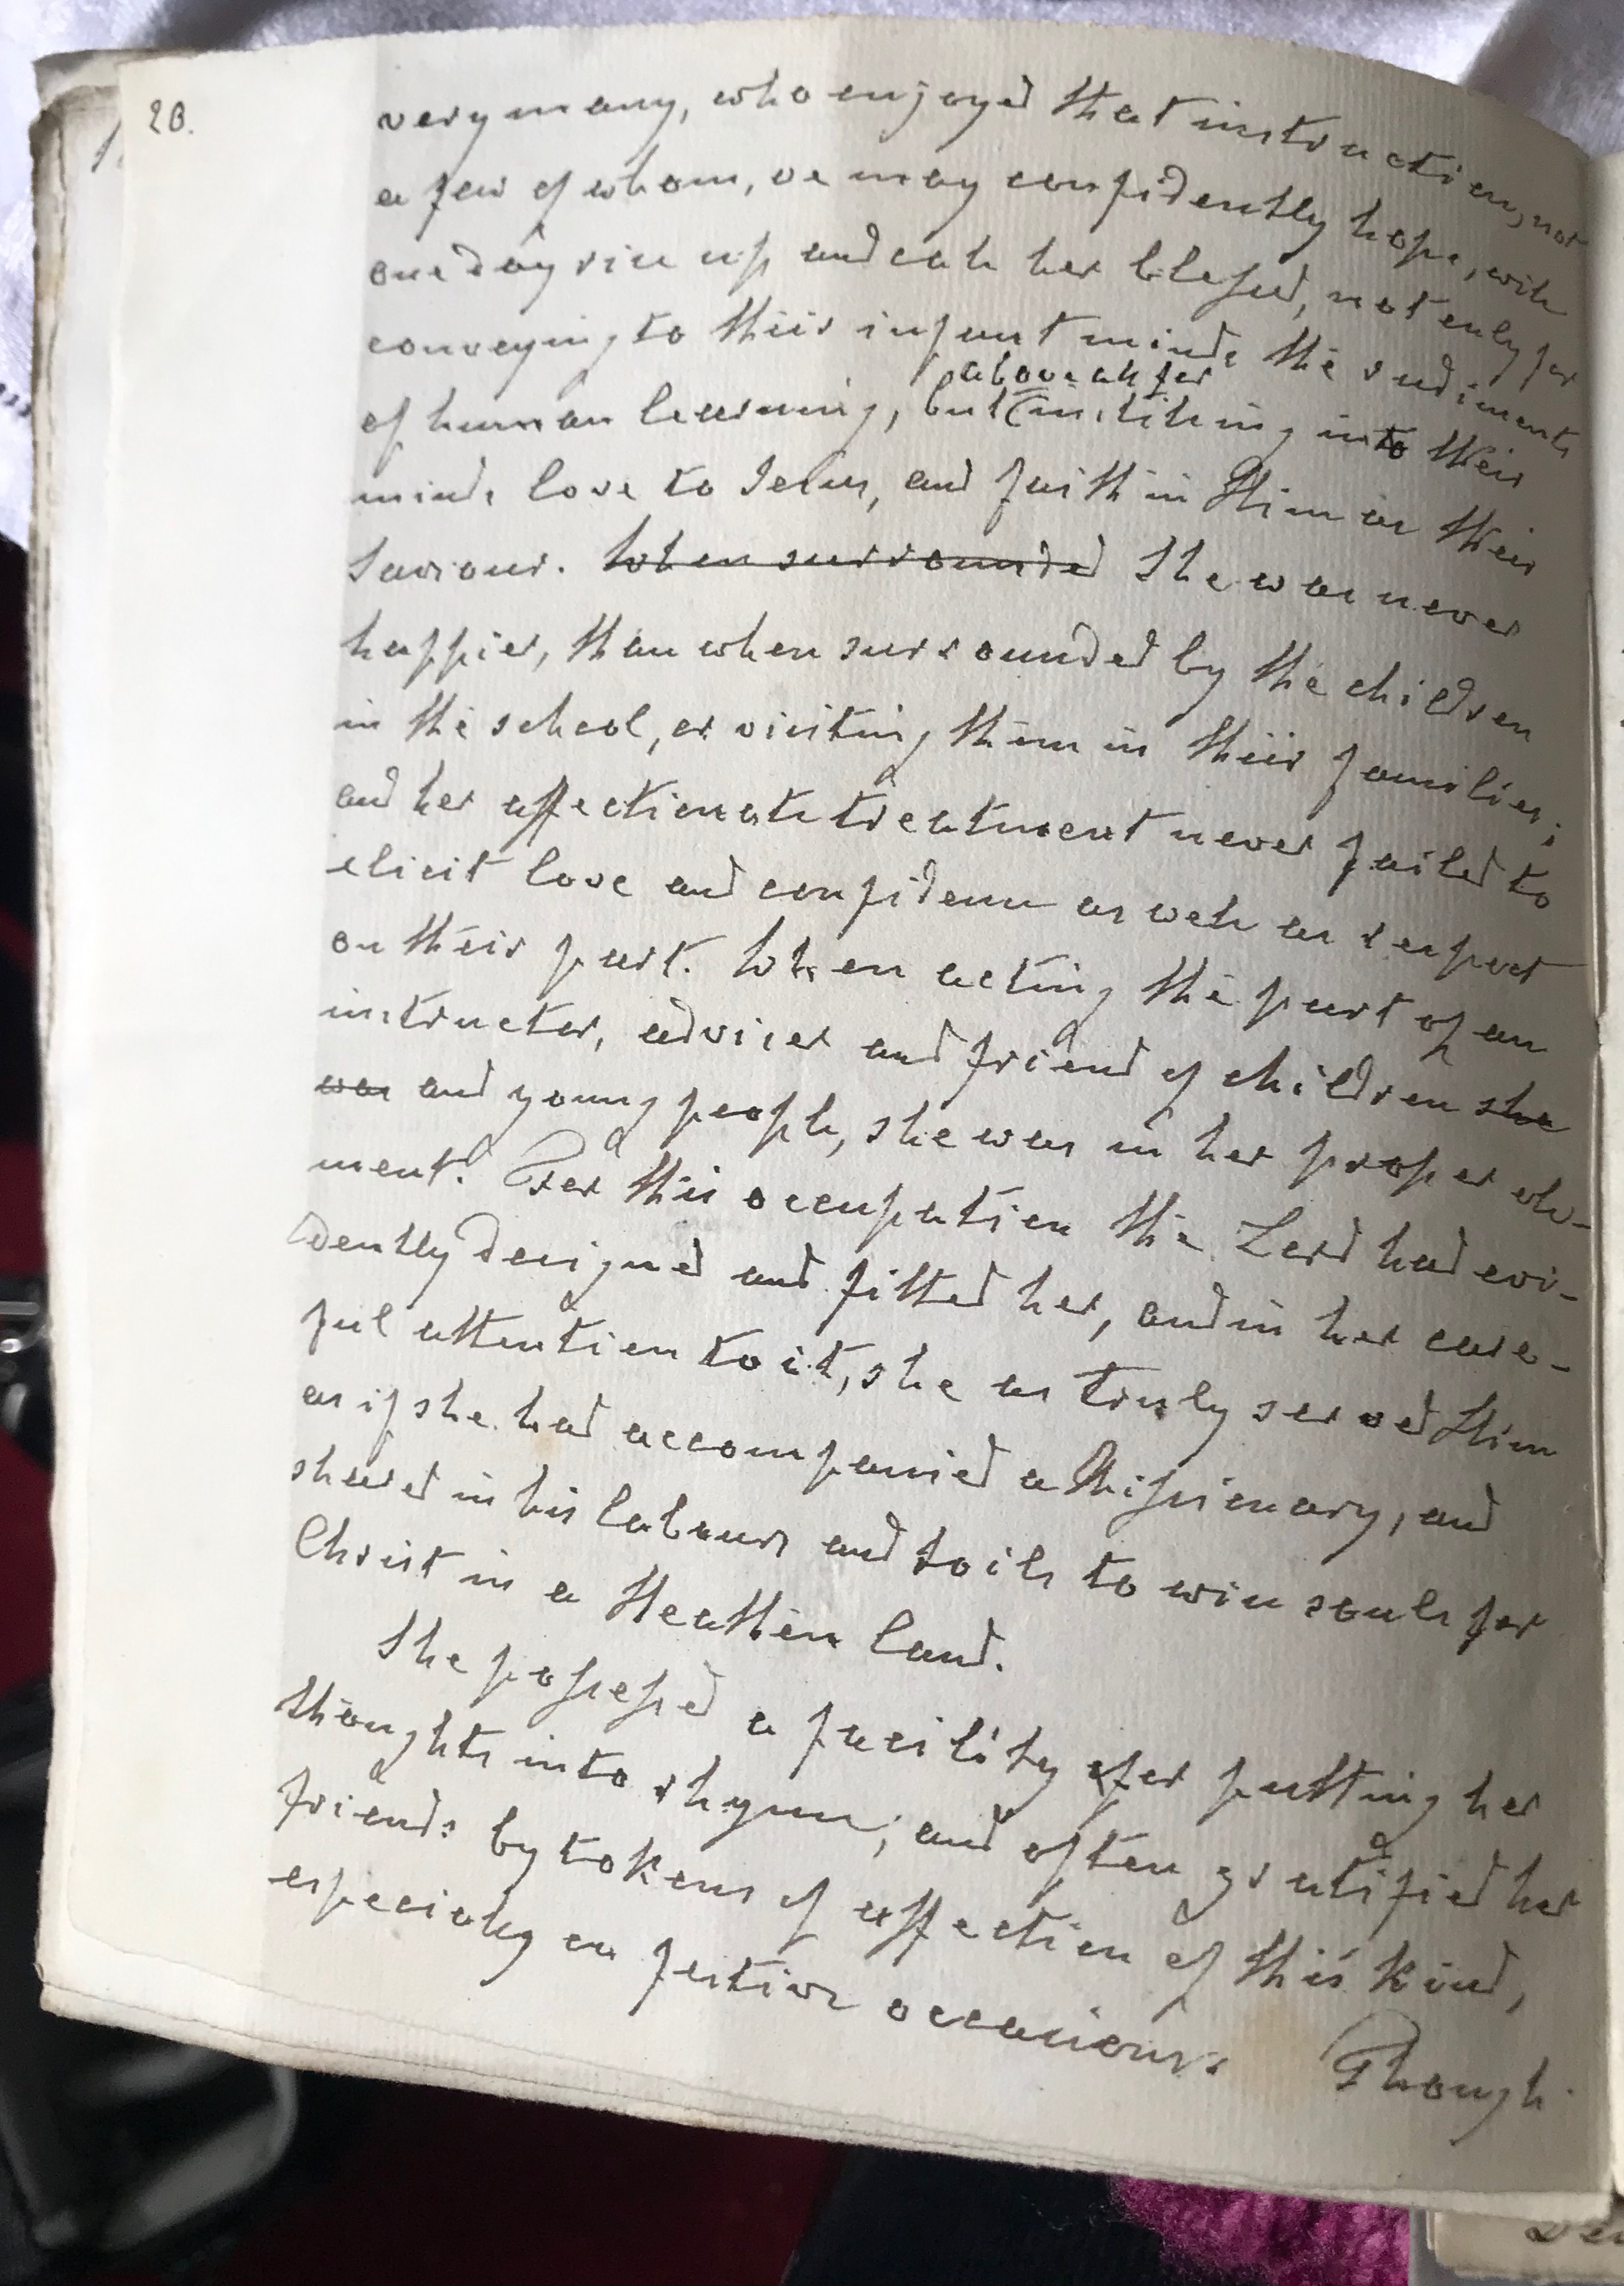 20.
very many, who enjoyed that instruction, not
a few of whom, we may confidently hope, will
one day rise up and call her blessed, not only for
conveying to their infant minds the rudiments
above all for
of human learning, but instilling into their
minds love to Jesus, and faith in Him as their
Saviour. When surrounded She was never
happier, than when surrounded by the children
in the school, or visiting them in their families;
and her affectionate treatment never failed to
elicit love and confidence as well as respect
on their part. When acting the part of an
instructor, adviser and friend of children she
was and young people, she was in her proper ele-
ment. For this occupation the Lord had evi-
dently designed and fitted her, and in her care-
ful attention to it, she as truly served Him
as if she had accompanied a Missionary, and
shared in his labours and toils to win souls for
Christ in a Heathen land.
She possessed a facility for putting her
thoughts into rhyme; and often gratified her
friends by tokens of affection of this kind,
especially on festive occasions. Though